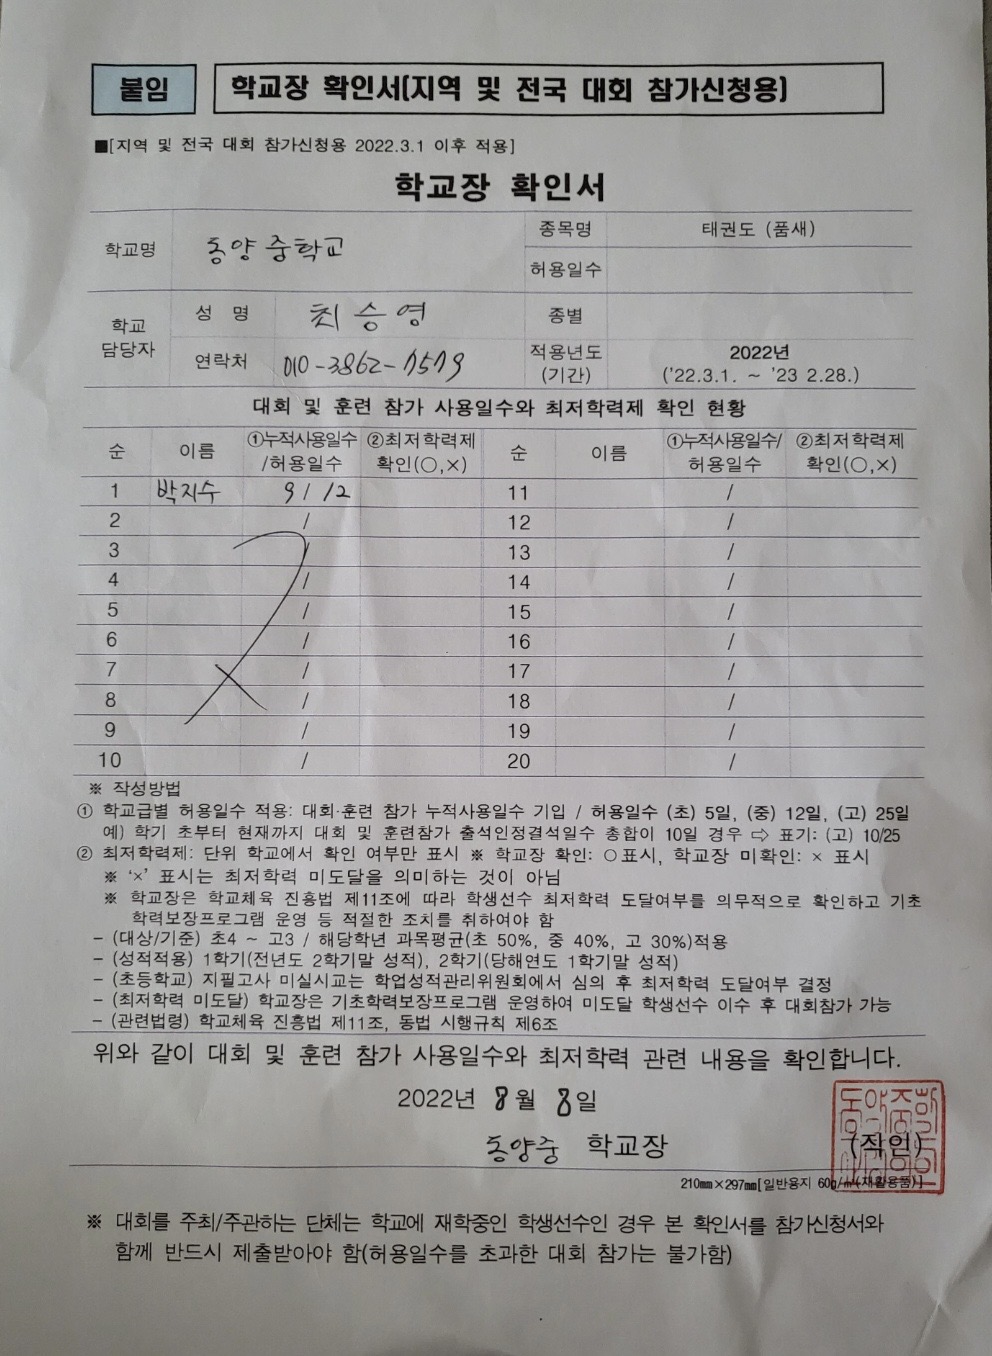 붙임
학교장 확인서(지역 및 전국 대회 참가신청용)
■[지역 및 전국 대회 참가신청용 2022.3.1 이후 적용]
학교장 확인서
학교명 동양중학교 종목명 태권도 (품새)
허용일수
학교 담당자 성 명 최승영 종별
연락처 010-3862-7579 적용년도 (기간) 2022년 ('22.3.1. ~ '23 2.28.)
대회 및 훈련 참가 사용일수와 최저학력제 확인 현황
순 이름 ①누적사용일수/허용일수 ②최저학력제 확인(○,×) 순 이름 ①누적사용일수/허용일수 ②최저학력제 확인(○,×)
1 박지수 9 / 12 11 /
2 / 12 /
3 / 13 /
4 / 14 /
5 / 15 /
6 / 16 /
7 / 17 /
8 / 18 /
9 / 19 /
10 / 20 /
※ 작성방법
① 학교급별 허용일수 적용: 대회·훈련 참가 누적사용일수 기입 / 허용일수 (초) 5일, (중) 12일, (고) 25일
예) 학기 초부터 현재까지 대회 및 훈련참가 출석인정결석일수 총합이 10일 경우 ⇨ 표기: (고) 10/25
② 최저학력제: 단위 학교에서 확인 여부만 표시 ※ 학교장 확인: ○표시, 학교장 미확인: × 표시
※ '×' 표시는 최저학력 미도달을 의미하는 것이 아님
※ 학교장은 학교체육 진흥법 제11조에 따라 학생선수 최저학력 도달여부를 의무적으로 확인하고 기초
학력보장프로그램 운영 등 적절한 조치를 취하여야 함
- (대상/기준) 초4 ~ 고3 / 해당학년 과목평균(초 50%, 중 40%, 고 30%)적용
- (성적적용) 1학기(전년도 2학기말 성적), 2학기(당해연도 1학기말 성적)
- (초등학교) 지필고사 미실시교는 학업성적관리위원회에서 심의 후 최저학력 도달여부 결정
- (최저학력 미도달) 학교장은 기초학력보장프로그램 운영하여 미도달 학생선수 이수 후 대회참가 가능
- (관련법령) 학교체육 진흥법 제11조, 동법 시행규칙 제6조
위와 같이 대회 및 훈련 참가 사용일수와 최저학력 관련 내용을 확인합니다.
2022년 8월 8일
동양중 학교장 (직인)
210㎜×297㎜[일반용지 60g/㎡(재활용품)]
※ 대회를 주최/주관하는 단체는 학교에 재학중인 학생선수인 경우 본 확인서를 참가신청서와
함께 반드시 제출받아야 함(허용일수를 초과한 대회 참가는 불가함)